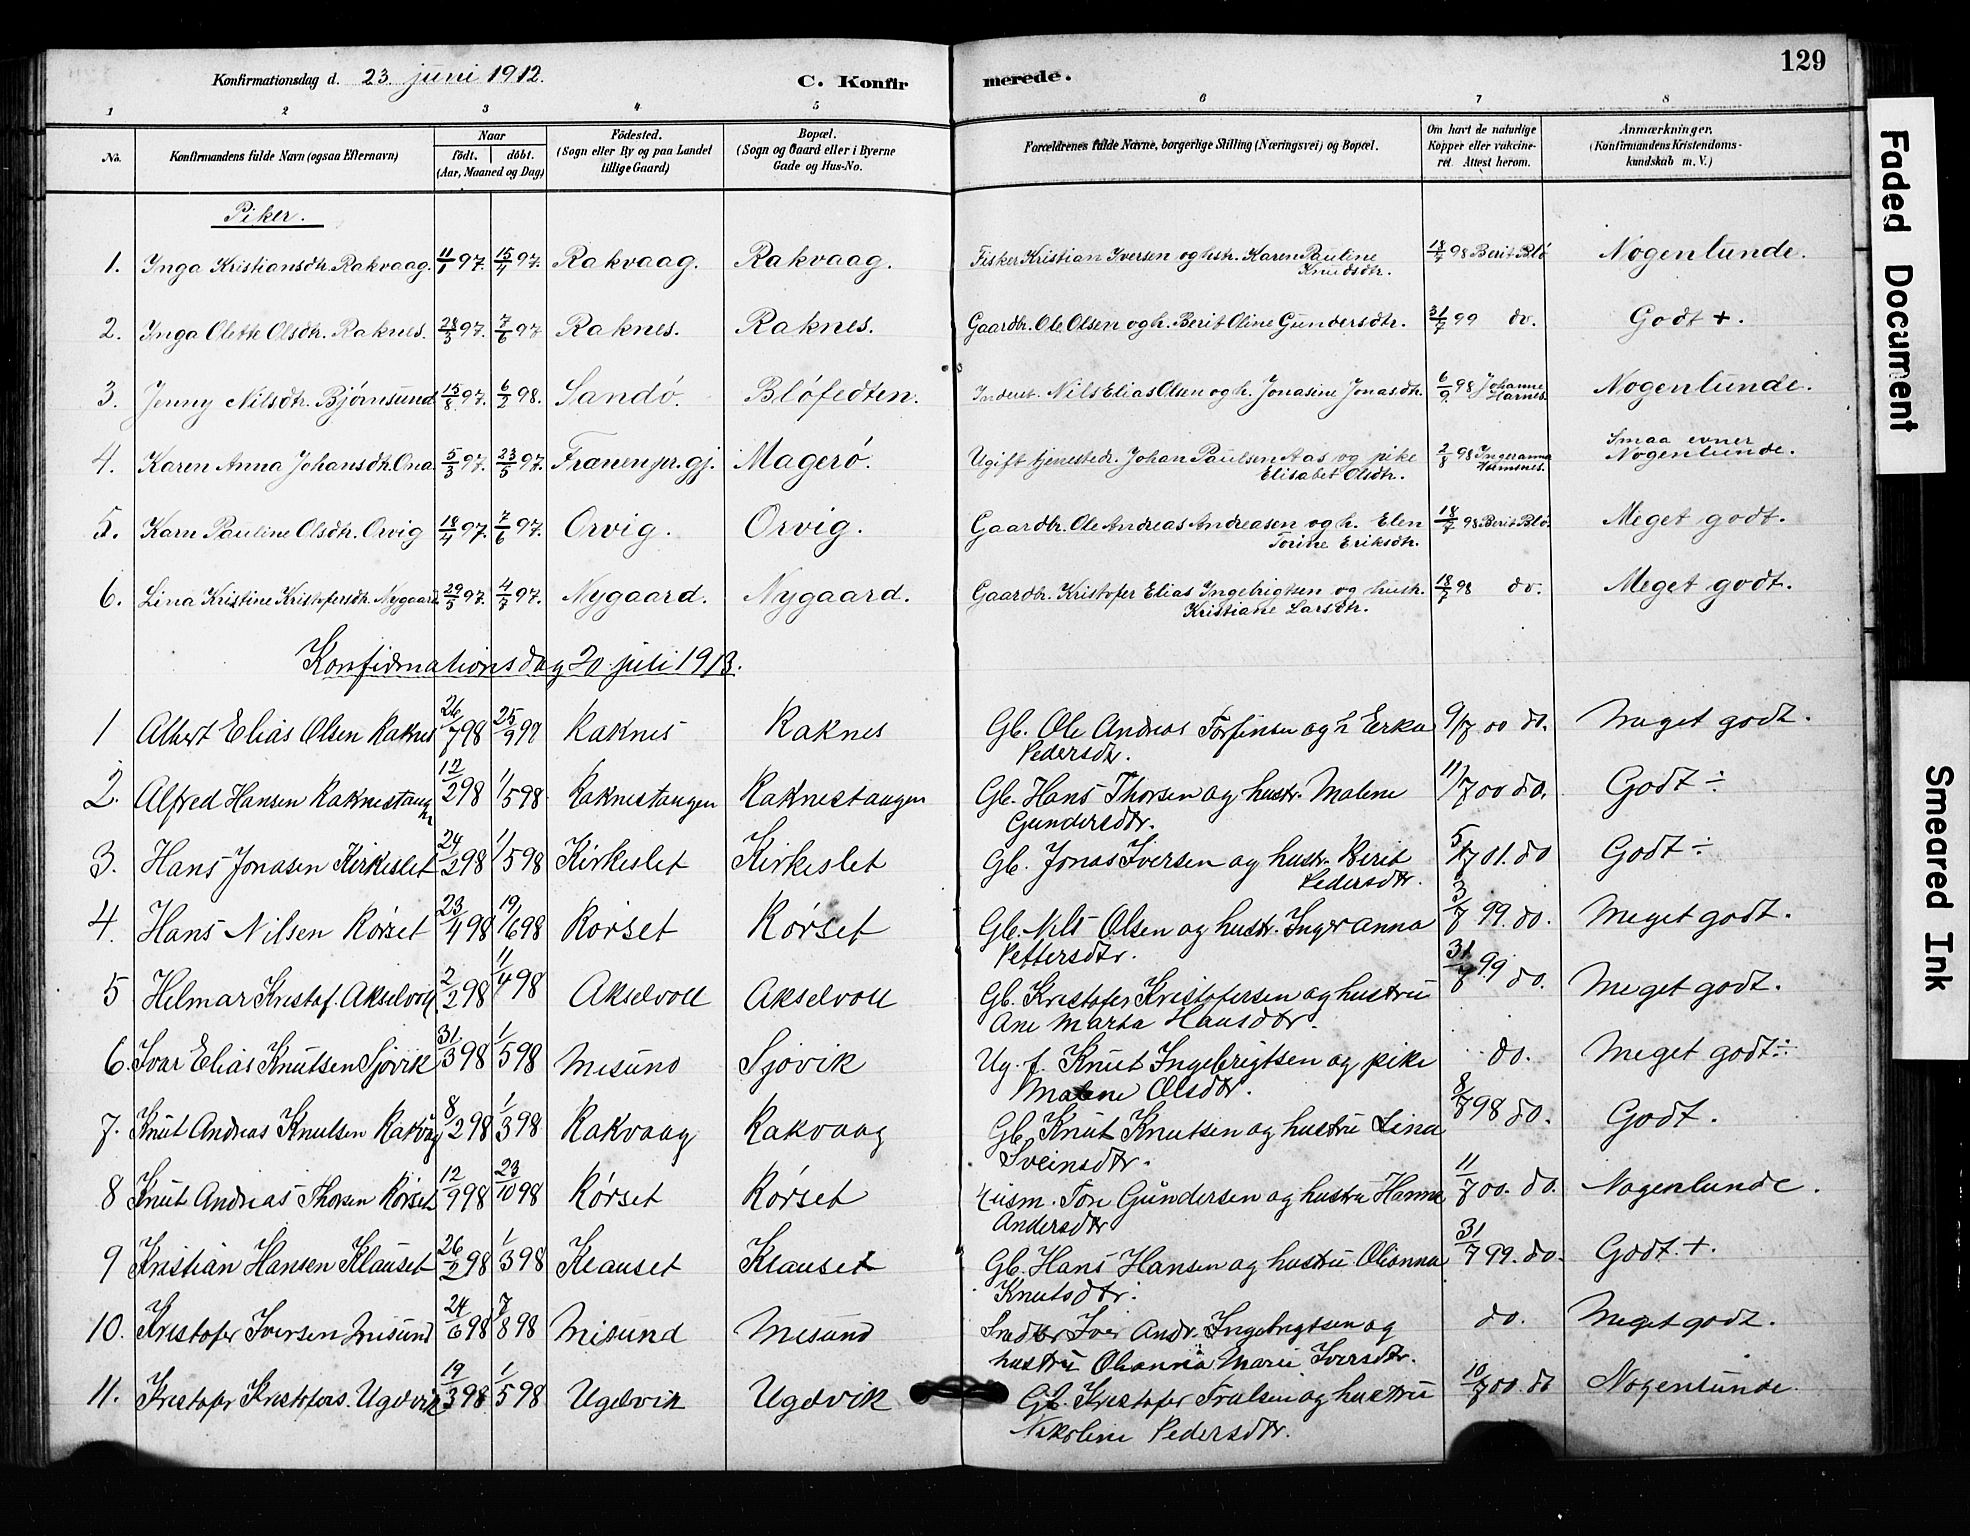 129
Konfirmationsdag d. 23. juni 1912.
C. Konfirmerede.
1 2 3 4 5 6 7 8
No. Konfirmandens fulde Navn (ogsaa Efternavn) Naar födt. döbt. (Aar, Maaned og Dag) Födested. (Sogn eller By og paa Landet tillige Gaard) Bopæl. (Sogn og Gaard eller i Byerne Gade og Hus-No. Forældrenes fulde Navne, borgerlige Stilling (Næringsvei) og Bopæl. Om havt de naturlige Kopper eller vakcineret. Attest herom. Anmærkninger. (Konfirmandens Kristendomskundskab m. V.)
Piker.
1. Inga Kristiansdtr. Rakvaag. 11/1 97. 15/4 97. Rakvaag. Rakvaag. Fisker Kristian Iversen og hstr. Karen Pauline Knudsdtr. 18/7 98 Berit Blö Nogenlunde.
2. Inga Oleth Olsdtr. Raknes. 24/3 97. 7/6 97 Raknes. Raknes. Gaardbr. Ole Olsen og h. Berit Oline Gundersdtr. 31/7 99 do. Godt +.
3. Jenny Nilsdtr. Björnsund 15/8 97. 6/2 98. Sandö. Blöfedten. Inderst. Nils Elias Olsen og h. Jonasine Jonasdtr. 6/9 98 Johanne Harnes. Nogenlunde.
4. Karen Anna Johansdtr. Ona. 5/3 97. 23/5 97. Frænen pr. gj. Magerö. Ugift tjenestedr. Johan Paulsen Aas og pike Elisabet Olsdtr. 2/8 98 Ingeranna Smaa evner Nogenlunde.
5. Karn Pauline Olsdtr. Orvig 18/4 97. 7/6 97. Orvig. Orvig. Gaardbr. Ole Andreas Andreasen og h. Elen Torine Eriksdtr. 18/7 98 Berit Blö. Meget godt.
6. Lina Kristine Kristofersdtr. Nygaard. 29/5 97. 4/7 97. Nygaard. Nygaard. Gaardbr. Kristofer Elias Ingebrigtsen og hustr. Kristiane Larsdtr. 18/7 98 do. Meget godt.
Konfirmationsdag 20 juli 1913.
1 Albert Elias Olsen Raknes 26/7 98 25/9 98 Raknes Raknes Gb. Ole Andreas Torfinsen og h Erka Pedersdtr. 9/7 00 do. Meget godt.
2. Alfred Hansen Raknestangen 12/2 98 1/5 98 Raknestangen Raknestangen Gb. Hans Thorsen og hustr. Malene Gundersdtr. 11/7 00 do. Godt ÷
3. Hans Jonasen Kirkeslet 24/2 98 1/5 98 Kirkeslet Kirkeslet Gb. Jonas Iversen og hustr. Berit Pedersdtr. 5/7 01. do Godt ÷
4. Hans Nilsen Rörset 23/4 98 19/6 98 Rörset Rörset Gb. Nils Olsen og hustr. Inger Anna Pettersdtr. 3/7 99. do. Meget godt.
5 Helmar Kristof. Akselvoll. 2/2 98 11/4 98 Akselvoll Akselvoll Gb. Kristofer Kristofersen og hustru Ane Marta Hansdtr. 31/7 99 do. Meget godt.
6. Ivar Elias Knutsen Sjövik 31/3 98 1/5 98 Misund Sjövik Ug. f. Knut Ingebrigtsen og pike Malene Olsdtr. do. Meget godt ÷
7. Knut Andreas Knutsen Rakvåg 8/2 98 1/3 98 Rakvaag Rakvaag Gb. Knut Knutsen og hustru Lina Sveinsdtr. 8/7 98 do. Godt.
8 Knut Andreas Thorsen Rörset 12/9 98 23/10 98 Rörset Rörset Husm. Tore Gundersen og hustru Hanna Andersdtr 11/7 00. do. Nogenlunde.
9 Kristian Hansen Klauset 26/2 98 1/3 98 Klauset Klauset Gb. Hans Hansen og hustru Olianna Knutsdtr. 31/7 99. do. Godt. +.
10. Kristofer Iversen Misund 24/6 98 7/8 98 Misund Misund Iver Andr. Ingebrigtsen og hustru Olianna Marie Iversdtr. do. Meget godt.
11. Kristofer Kristofers. Ugelvik 19/3 98 1/5 98 Ugelvik Ugelvik Gb. Kristofer Trulsen og hustru Nikoline Pedersdtr. 10/7 00. do Nogenlunde
Faded Document
Smeared Ink